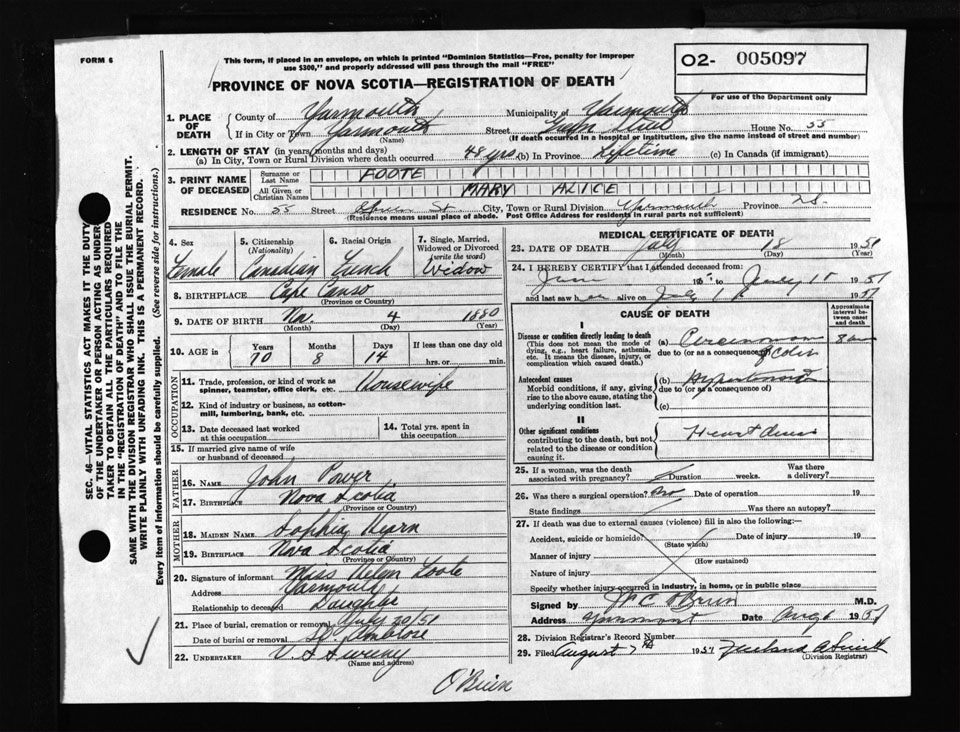 FORM 6
This form, if placed in an envelope, on which is printed "Dominion Statistics—Free, penalty for improper
use $300," and properly addressed will pass through the mail "FREE"
O2- 005097
For use of the Department only
PROVINCE OF NOVA SCOTIA—REGISTRATION OF DEATH
1. PLACE OF DEATH
County of Yarmouth Municipality of Yarmouth
If in City or Town Yarmouth Street House No. 55
(Name) (If death occurred in a hospital or institution, give the name instead of street and number)
2. LENGTH OF STAY (in years, months and days)
(a) In City, Town or Rural Division where death occurred 48 yrs (b) In Province Lifetime (c) In Canada (if immigrant)
3. PRINT NAME OF DECEASED
Surname or Last Name FOOTE
All Given or Christian Names MARY ALICE
RESIDENCE No. 55 Street St City, Town or Rural Division Yarmouth Province N.S.
(Residence means usual place of abode. Post Office Address for residents in rural parts not sufficient)
4. Sex
Female
5. Citizenship
(Nationality)
Canadian
6. Racial Origin
French
7. Single, Married, Widowed or Divorced
(write the word)
Widow
8. BIRTHPLACE Cape Canso
(Province or Country)
9. DATE OF BIRTH Nov. 4 1880
(Month) (Day) (Year)
10. AGE in Years Months Days If less than one day old
70 8 14 hrs. or min.
OCCUPATION
11. Trade, profession, or kind of work as
spinner, teamster, office clerk, etc. Housewife
12. Kind of industry or business, as cotton-
mill, lumbering, bank, etc.
13. Date deceased last worked
at this occupation
14. Total yrs. spent in
this occupation
15. If married give name of wife
or husband of deceased
FATHER
16. NAME John Power
17. BIRTHPLACE Nova Scotia
(Province or Country)
MOTHER
18. MAIDEN NAME Sophia Hearn
19. BIRTHPLACE Nova Scotia
(Province or Country)
20. Signature of informant Miss Helen Foote
Address Yarmouth
Relationship to deceased Daughter
21. Place of burial, cremation or removal July 20/51
Date of burial or removal St. Ambrose
22. UNDERTAKER V S Sweeny
(Name and address)
MEDICAL CERTIFICATE OF DEATH
23. DATE OF DEATH July 18 1951
(Month) (Day) (Year)
24. I HEREBY CERTIFY that I attended deceased from:
June 195 to July 18 1951
and last saw h er alive on July 1951
CAUSE OF DEATH
Approximate interval between onset and death
I
Disease or condition directly leading to death
(This does not mean the mode of
dying, e.g., heart failure, asthenia,
etc. It means the disease, injury, or
complication which caused death.)
(a) Carcinoma
due to (or as a consequence of) of Colon
8
Antecedent causes
Morbid conditions, if any, giving
rise to the above cause, stating the
underlying condition last.
(b)
due to (or as a consequence of)
(c)
II
Other significant conditions
contributing to the death, but not
related to the disease or condition
causing it.
Heart disease
25. If a woman, was the death
associated with pregnancy? Duration weeks. Was there
a delivery?
26. Was there a surgical operation? No Date of operation 19
State findings Was there an autopsy?
27. If death was due to external causes (violence) fill in also the following:—
Accident, suicide or homicide? Date 19
(State which)
Manner of injury
(How sustained)
Nature of injury
Specify whether injury occurred in industry, in home, or in public place
Signed by C O'Brien M.D.
Address Yarmouth Date Aug 6 1951
28. Division Registrar's Record Number
29. Filed August 7th 1951 Smith
(Division Registrar)
O'Brien
SEC. 46—VITAL STATISTICS ACT MAKES IT THE DUTY
OF THE UNDERTAKER OR PERSON ACTING AS UNDER-
TAKER TO OBTAIN ALL THE PARTICULARS REQUIRED
IN THE "REGISTRATION OF DEATH" AND TO FILE THE
SAME WITH THE DIVISION REGISTRAR WHO SHALL ISSUE THE BURIAL PERMIT.
WRITE PLAINLY WITH UNFADING INK. THIS IS A PERMANENT RECORD.
Every item of information should be carefully supplied. (See reverse side for instructions.)